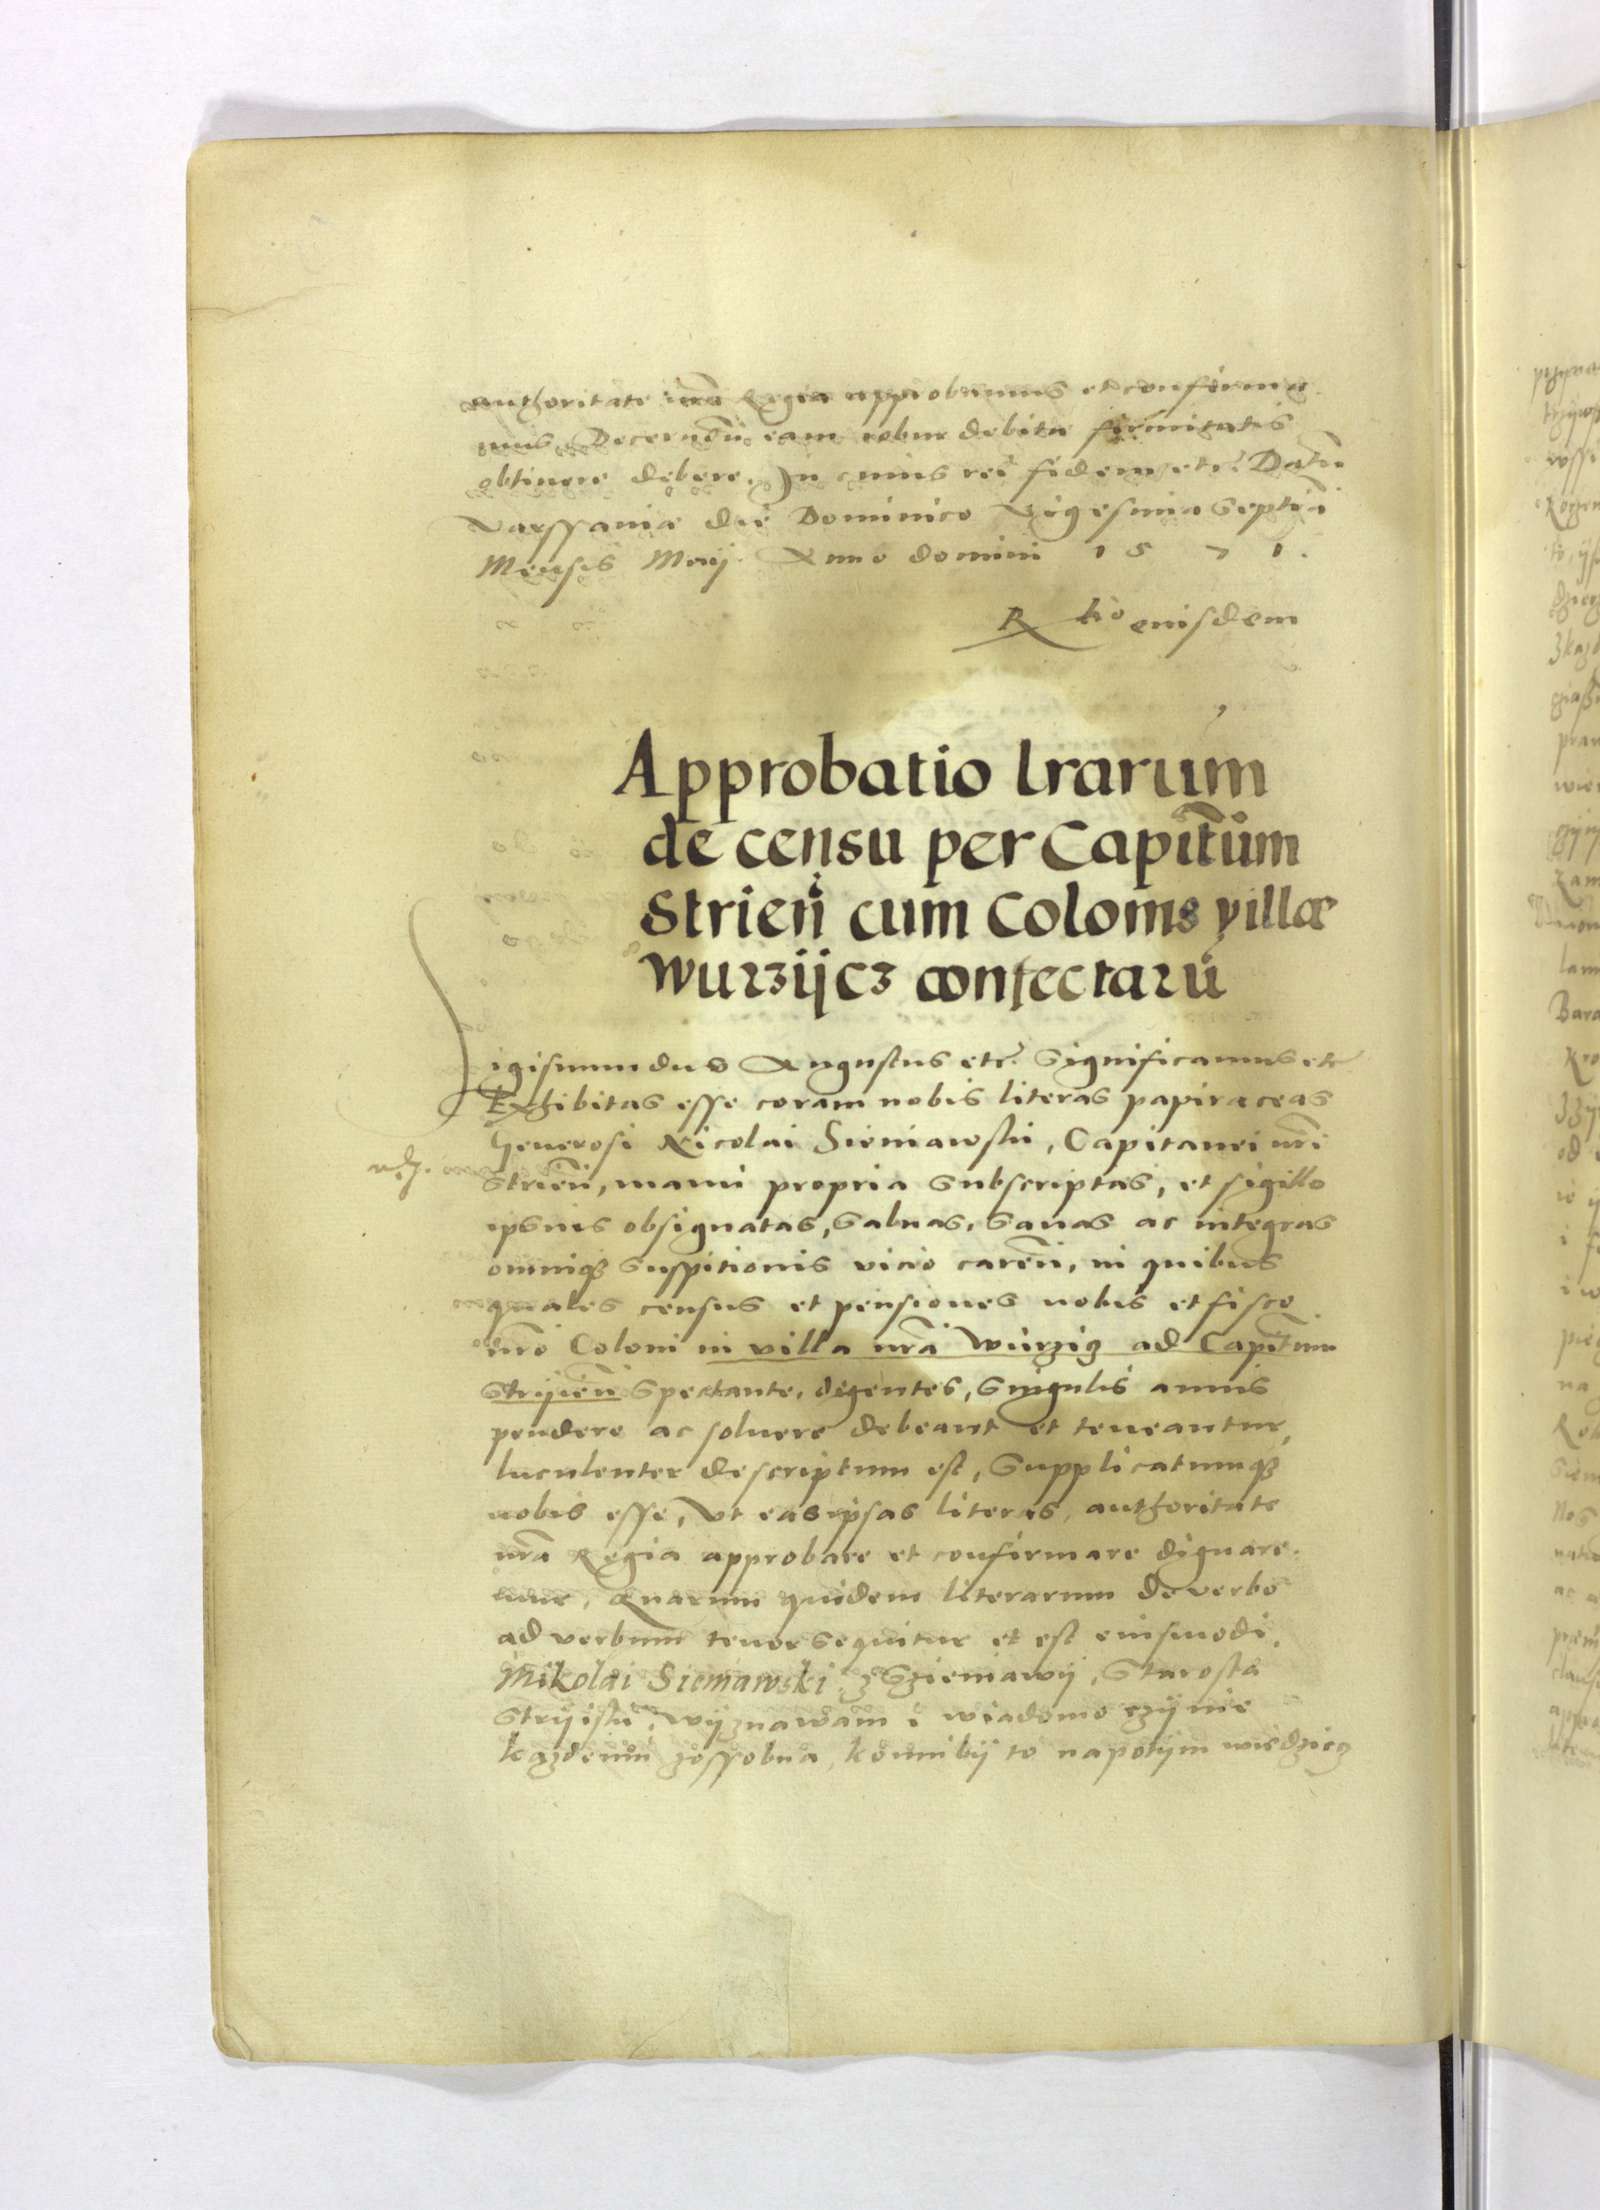 authoritate nrã Regia approbamus et confirma
mus, Decernẽn eam robur debitæ firmitatis
obtinere debere. In cuius rei fidem etc. Datũ
Varssaviæ die Dominico Vigesima Septĩa
Mensis Maij. Anno domini 1571.
Rtio eiusdem
Approbatio lrarum
de censu per Capitũm
Strien̄ cum Colonis villæ
Wurzijcz confectarũ
Sigismundus Augustus etc. Significamus etc
Exhibitas esse coram nobis literas papiraceas
Generosi Nicolai Sieniawski, Capitanei nrĩ
Strien̄, manu propria subscriptas, et sigillo
ipsius obsignatas, saluas, sanas ac integras
omniq3 suspitionis vicio caren̄, in quibus
quales census et pensiones nobis et fisco
nrõ Coloni in villa nrã Wurzig ad Capitm̃
Strijien̄ spectante, degentes, singulis annis
pendere ac soluere debeant et teneantur,
luculenter descriptum est, Supplicatumq3
nobis esse, vt eas ipsas literas, authoritate
nrã Regia approbare et confirmare dignare
mur, Quarum quidem literarum de verbo
ad verbum tenor sequitur et est eiusmodi.
Mikolai Sieniawski z Szieniawij, Starosta
Strijiski, wijznawam i wiadomo czijnie
kazdemu zossobna, komubij to napotijm wiedziecz